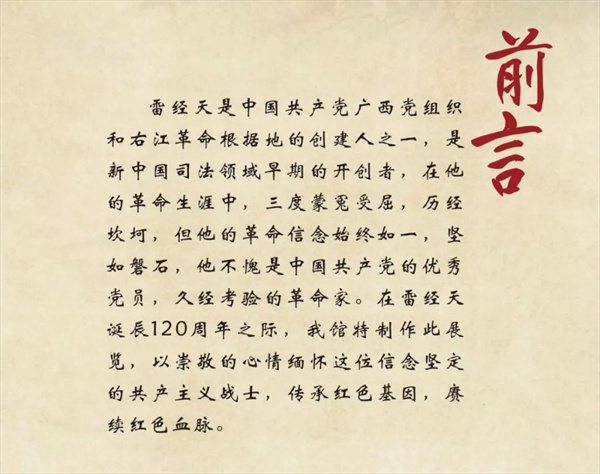 前言
雷经天是中国共产党广西党组织
和右江革命根据地的创建人之一，是
新中国司法领域早期的开创者，在他
的革命生涯中，三度蒙冤受屈，历经
坎坷，但他的革命信念始终如一，坚
如磐石，他不愧是中国共产党的优秀
党员，久经考验的革命家。在雷经天
诞辰120周年之际，我馆特制作此展
览，以崇敬的心情缅怀这位信念坚定
的共产主义战士，传承红色基因，赓
续红色血脉。